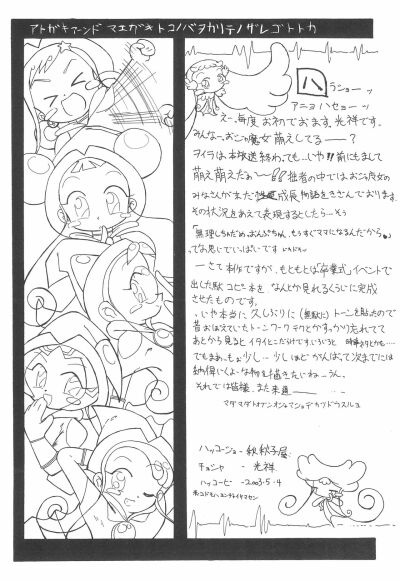 アトガキアーンド マエガキ トコノバヲカリテノザレゴトトカ
ハラショーッ
アニョハセョーッ
えー、毎度 お初でおます、光祥です。
みんなー、おジャ魔女萌えしてるー――?
ヲイラは本放送終わっても…いや!!前にもまして
萌え萌えだぁ~!!拙者の中ではおジャ魔女の
みなさんがまだ成長物語をきざんでおります
その状況をあえて表現するとしたら…そう
「無理しちゃだめ、おんぷちゃん、もうすぐママになるんだから。」
でお思いでいっぱいです
ーさて本作ですが、もともとは「卒業式」イベントで
出した駄コピー本を なんとか見れるくらいに完成
させたものです。
いや本当に、久しぶりに(無駄に)トーンを貼ったので
昔おぼえていたトーンワークテクとかすっかり忘れてて
あとから見るとイタイとこだらけです。いろいろと
でもまぁ、もぉ少し…少しほどがんばって次までには
納得いくよーな物を描きたいねーうん。
それでは皆様、また来週――
ハッコーショ - 秋秋子屋
チョシャ - 光祥
ハッコービ - 2003・5・4